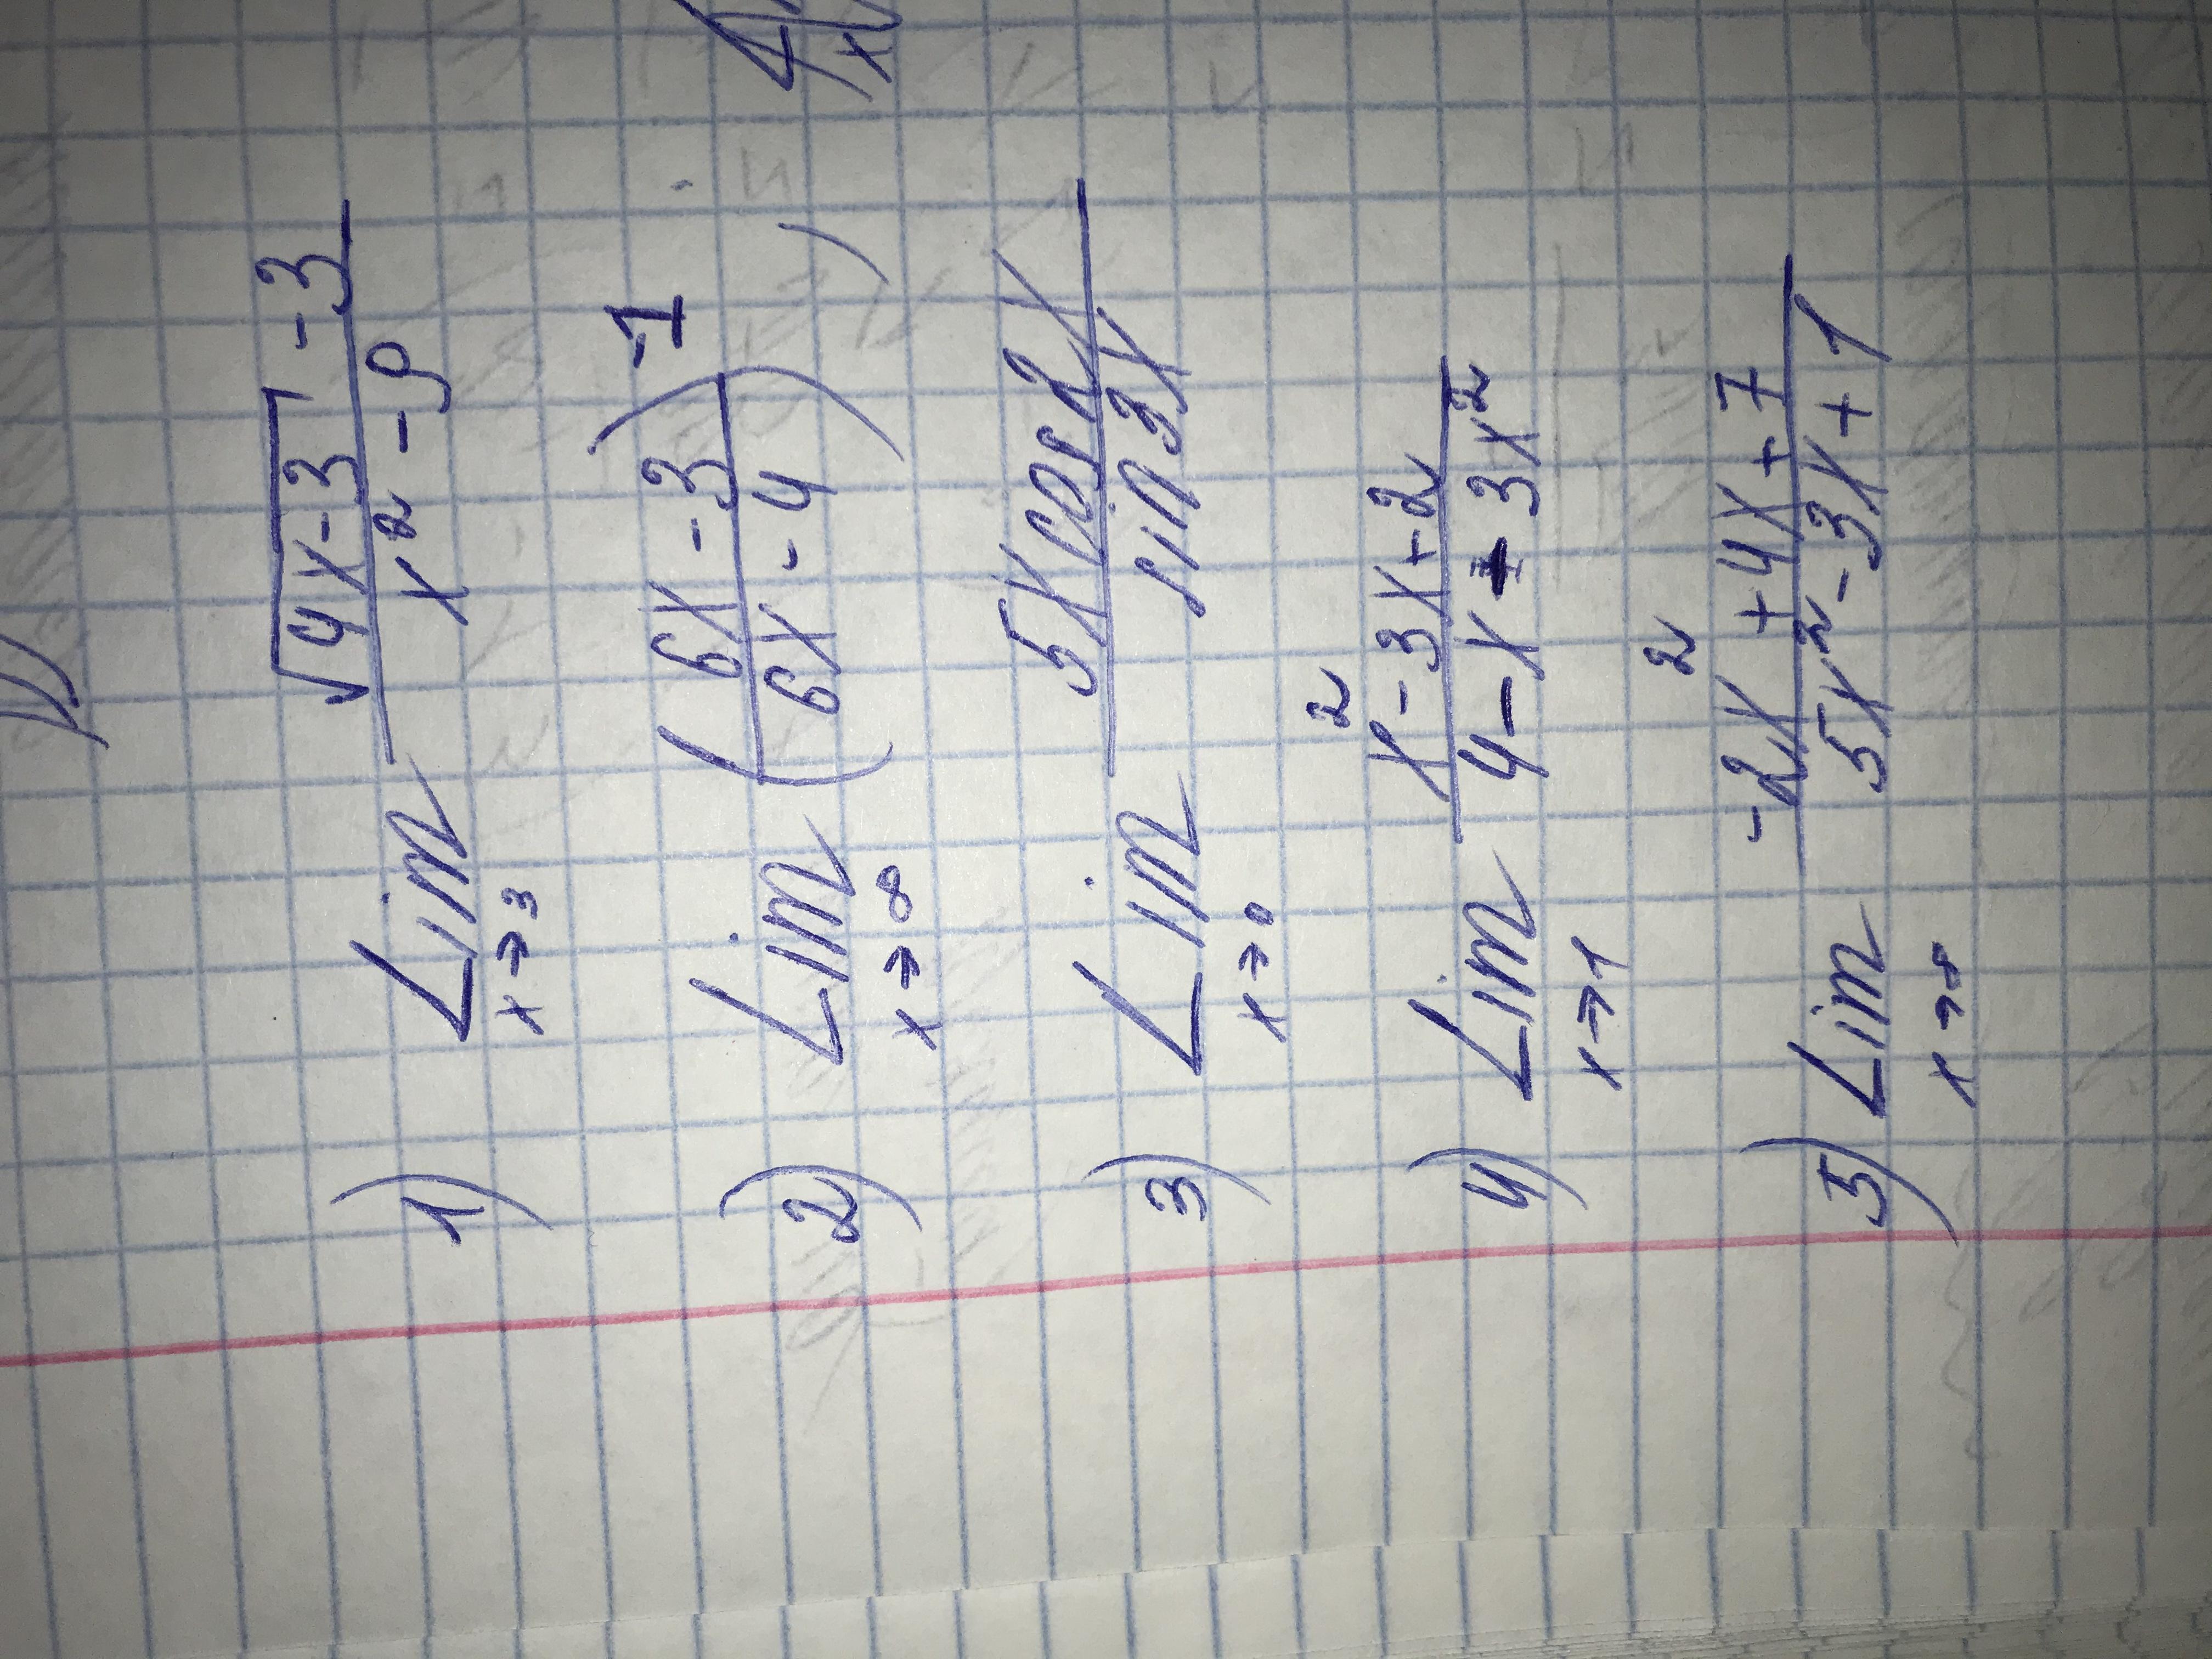 1) Lim x→3 (√(4x-3) -3)/(x² -9)
2) Lim x→∞ ((6x -3)/(6x -4))^-1 )
3) Lim x→0 (5x cos2x)/(sin3x)
4) Lim x→1 (x² -3x+2)/(4-x-3x²)
5) Lim x→∞ (-2x² +4x+7)/(5x²-3x+1)